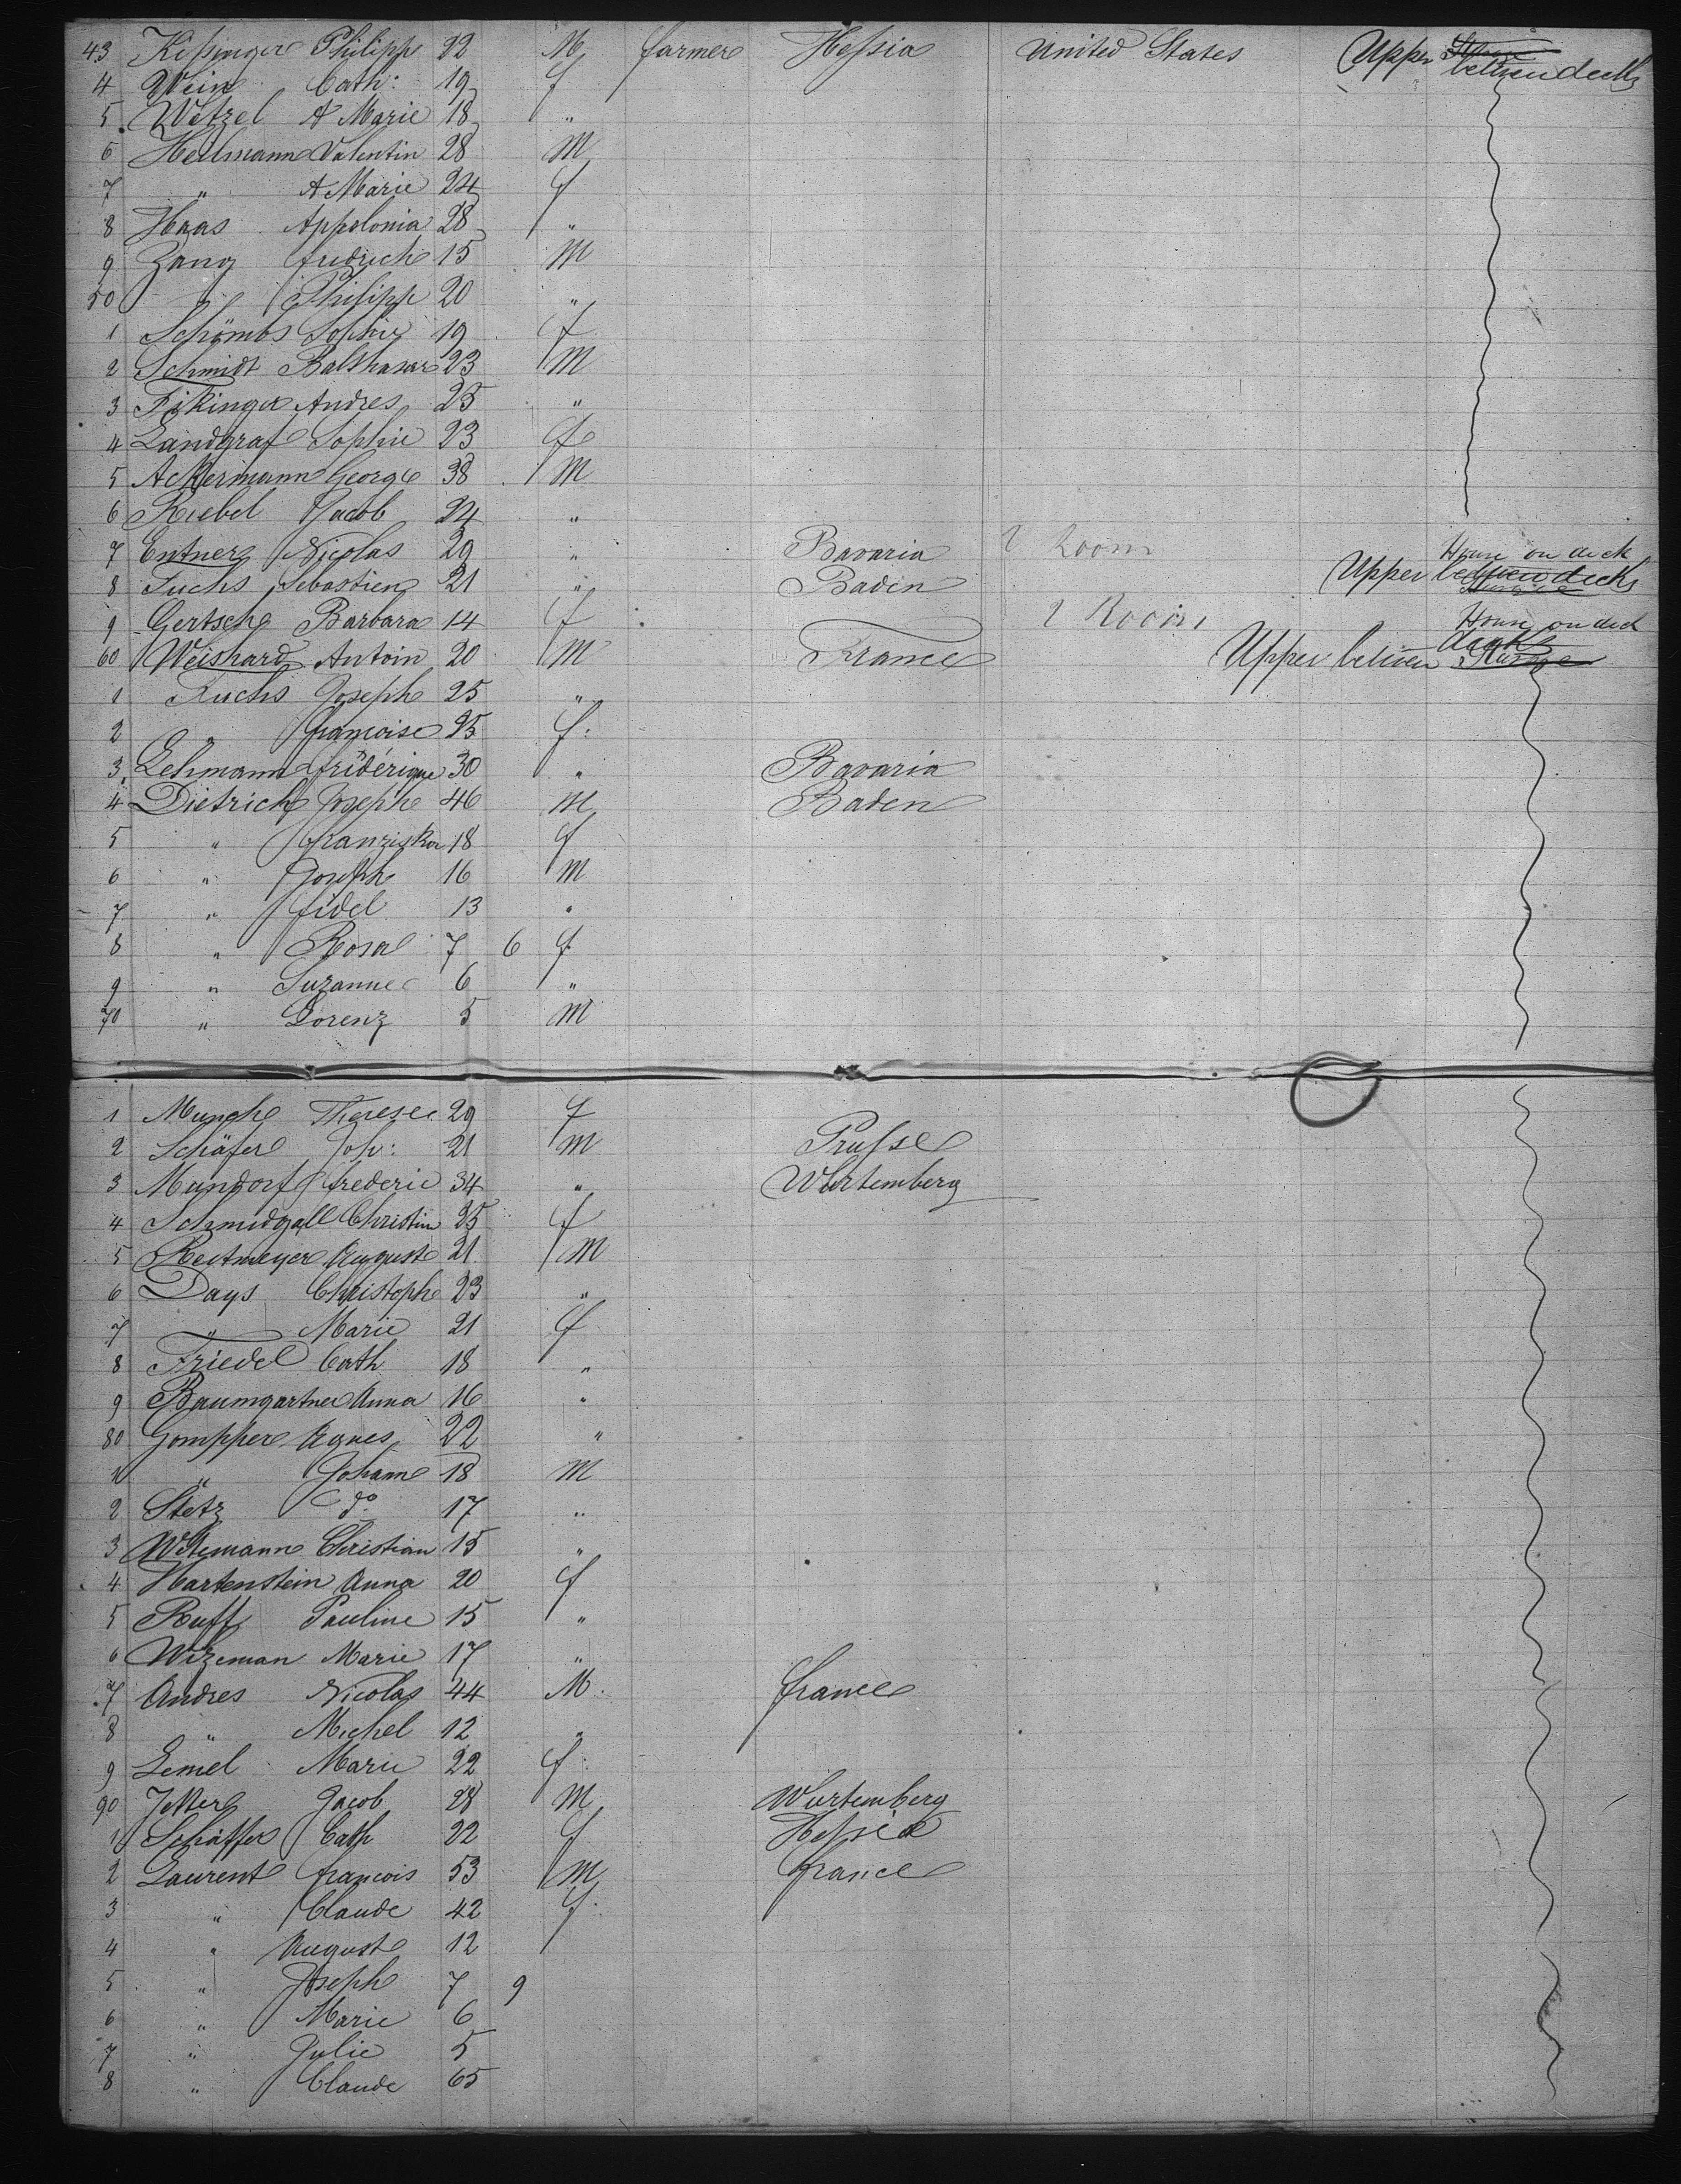 43 Keßinger Philipp 22 M farmer Heßia United States Upper betwen decks
4 Wein Cath: 19 f
5 Wetzel A Marie 18 "
6 Heilmann Valentin 28 M
7 " A Marie 24 f
8 Haas Appolonia 28 "
9 Zang fridrich 15 M
50 " Philipp 20 "
1 Schömbs Sophie 19 f
2 Schmidt Balthasar 23 M
3 Fikinger Andres 25 "
4 Landgraf Sophie 23 f
5 Ackermann George 38 M
6 Riebel Jacob 24 "
7 Entner Nicolas 29 " Bavaria Room House on deck
8 Fuchs Sebastien 21 " Baden Upper between decks
9 Gertsch Barbara 14 f Room House on deck
60 Weishard Antoin 20 M France Upper betwen decks
1 Fuchs Joseph 25 "
2 " francoise 25 f:
3 Lehmann fridérique 30 " Bavaria
4 Dietrich Joseph 46 M Baden
5 " franziska 18 f
6 " Joseph 16 M
7 " fidel 13 "
8 " Rosa 7 6 f
9 " Suzanne 6 "
70 " Lorenz 5 M
1 Munch Therese 29 f
2 Schäfer Joh: 21 M Prusse
3 Mundorf frederic 34 " Wurtemberg
4 Schmidgall Christin 25 f
5 Reitmeyer Auguste 21 M
6 Days Christoph 23 "
7 " Marie 21 f
8 Friedel Cath 18 "
9 Baumgartner Anna 16 "
80 Gompper Agnes 22 "
1 " Johann 18 M
2 Stetz do 17 "
3 Witemann Christian 15 "
4 Hartenstein Anna 20 f
5 Ruff Pauline 15 "
6 Wizeman Marie 17 "
7 Andres Nicolas 44 M. france
8 " Michel 12 "
9 Lemel Marie 22 f:
90 Jetter Jacob 28 M Wurtemberg
1 Schäffer Cath 22 f Heßia
2 Laurent francois 53 M france
3 " Claude 42 f.
4 " Auguste 12
5 " Joseph 7 9
6 " Marie 6
7 " Julie 5
8 " Claude 65